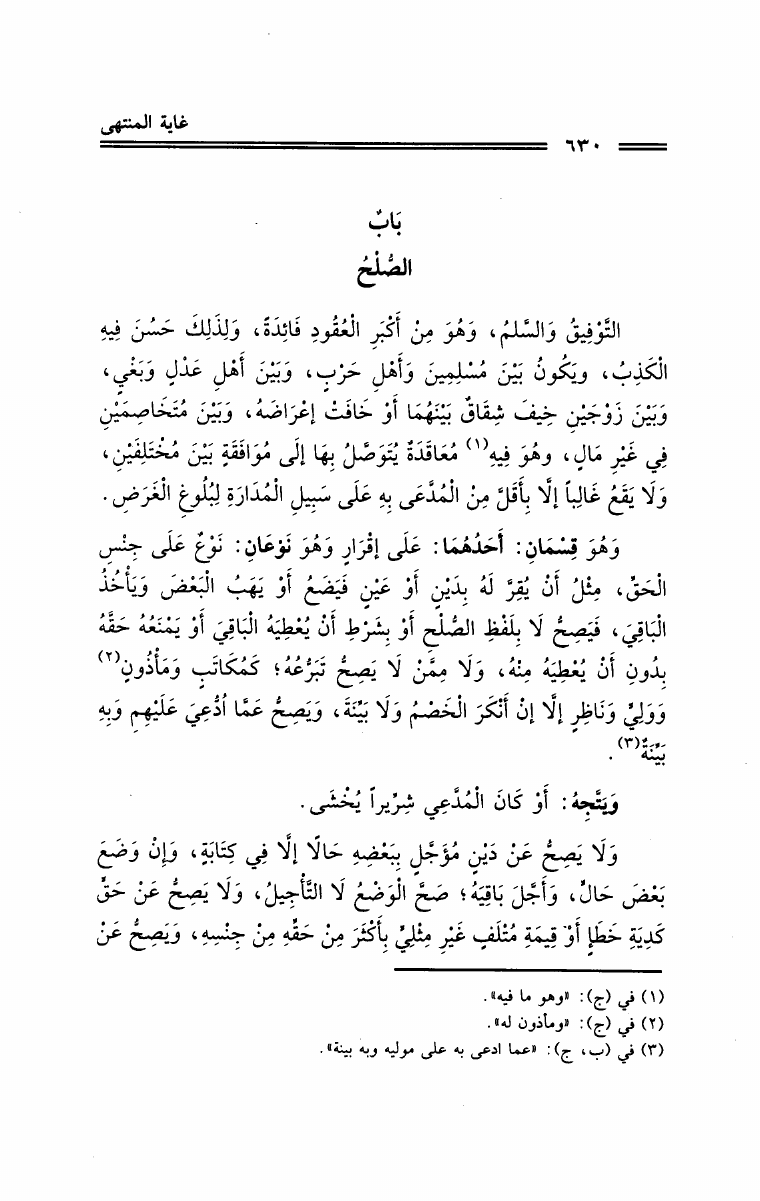 غاية المنتهى
٦٣٠
بَابٌ
الصُّلْحُ
التَّوْفِيقُ وَالسَّلمُ، وَهُوَ مِنْ أَكْبَرِ الْعُقُودِ فَائِدَةً، وَلِذَلِكَ حَسُنَ فِيهِ
الْكَذِبُ، وَيَكُونُ بَيْنَ مُسْلِمِينَ وَأَهْلِ حَرْبٍ، وَبَيْنَ أَهْلِ عَدْلٍ وَبَغْيٍ،
وَبَيْنَ زَوْجَيْنِ خِيفَ شِقَاقٌ بَيْنَهُمَا أَوْ خَافَتْ إعْرَاضَهُ، وَبَيْنَ مُتَخَاصِمَيْنِ
فِي غَيْرِ مَالٍ، وهُوَ فِيهِ(١) مُعَاقَدَةٌ يُتَوَصَّلُ بِهَا إلَى مُوَافَقَةٍ بَيْنَ مُخْتَلِفَيْنِ،
وَلَا يَقَعُ غَالِباً إلَّا بِأَقَلَّ مِنْ الْمُدَّعَى بِهِ عَلَى سَبِيلِ الْمُدَارَةِ لِبُلُوغِ الْغَرَضِ.
وَهُوَ قِسْمَانِ: أَحَدُهُمَا: عَلَى إقْرَارٍ وَهُوَ نَوْعَانِ: نَوْعٌ عَلَى جِنْسِ
الْحَقِّ، مِثْلُ أَنْ يُقِرَّ لَهُ بِدَيْنٍ أَوْ عَيْنٍ فَيَضَعُ أَوْ يَهَبُ الْبَعْضَ وَيَأْخُذُ
الْبَاقِيَ، فَيَصِحُّ لَا بِلَفْظِ الصُّلْحِ أَوْ بِشَرْطِ أَنْ يُعْطِيَهُ الْبَاقِيَ أَوْ يَمْنَعُهُ حَقَّهُ
بِدُونِ أَنْ يُعْطِيَهُ مِنْهُ، وَلَا مِمَّنْ لَا يَصِحُّ تَبَرُّعُهُ؛ كَمُكَاتَبٍ وَمَأْذُونٍ(٢)
وَوَلِيٍّ وَنَاظِرٍ إلَّا إنْ أَنْكَرَ الْخَصْمُ وَلَا بَيِّنَةَ، وَيَصِحُّ عَمَّا اُدُّعِيَ عَلَيْهِم وَبِهِ
بَيِّنَةٌ(٣).
وَيَتَّجِهُ: أَوْ كَانَ الْمُدَّعِي شِرِّيراً يُخْشَى.
وَلَا يَصِحُّ عَنْ دَيْنٍ مُؤَجَّلٍ بِبَعْضِهِ حَالًا إلَّا فِي كِتَابَةٍ، وَإِنْ وَضَعَ
بَعْضَ حَالٍّ، وَأَجَّلَ بَاقِيَهُ؛ صَحَّ الْوَضْعُ لَا التَّأْجِيلُ، وَلَا يَصِحُّ عَنْ حَقٍّ
كَدِيَةِ خَطَإٍ أَوْ قِيمَةِ مُتْلَفٍ غَيْرِ مِثْلِيٍّ بِأَكْثَرَ مِنْ حَقِّهِ مِنْ جِنْسِهِ، وَيَصِحُّ عَنْ
(١) في (ج): «وهو ما فيه».
(٢) في (ج): «ومأذون له».
(٣) في (ب، ج): «عما ادعى به على موليه وبه بينة».